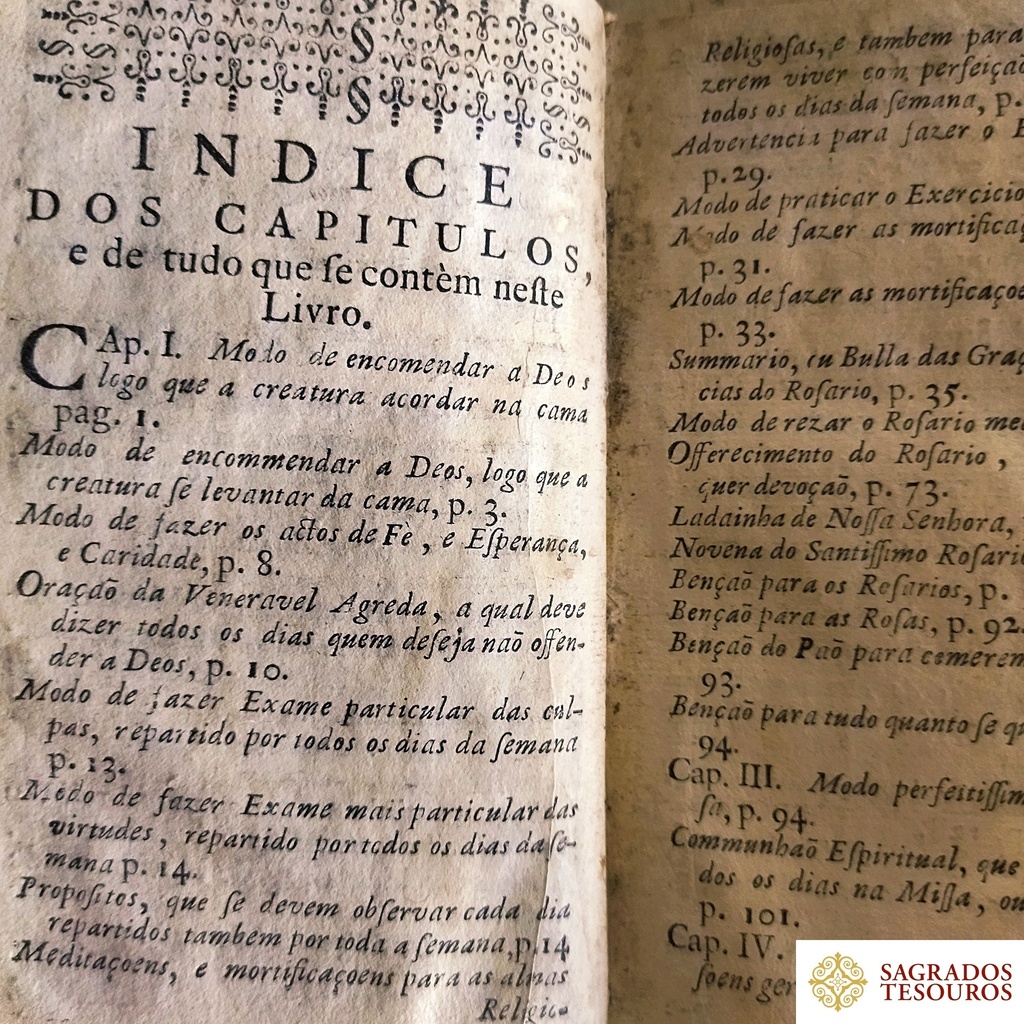 INDICE
DOS CAPITULOS,
e de tudo que ſe contèm neſte
Livro.
CAp. I. Modo de encomendar a Deos
logo que a creatura acordar na cama
pag. 1.
Modo de encommendar a Deos, logo que a
creatura ſe levantar da cama, p. 3.
Modo de fazer os actos de Fè, e Eſperança,
e Caridade, p. 8.
Oraçaõ da Veneravel Agreda, a qual deve
dizer todos os dias quem deſeja naõ offen-
der a Deos, p. 10.
Modo de fazer Exame particular das cul-
pas, repartido por todos os dias da ſemana
p. 13.
Modo de fazer Exame mais particular das
virtudes, repartido por todos os dias da ſe-
mana p. 14.
Propoſitos, que ſe devem obſervar cada dia
repartidos tambem por toda a ſemana, p. 14
Meditaçoens, e mortificaçoens para as almas
Religio-
Religioſas, e tambem para
zerem viver con perfeiçaõ
todos os dias da ſemana, p.
Advertencia para fazer o E
p. 29.
Modo de praticar o Exercicio
Modo de fazer as mortificaç
p. 31.
Modo de fazer as mortificaçoe
p. 33.
Summario, ou Bulla das Graç
cias do Roſario, p. 35.
Modo de rezar o Roſario me
Offerecimento do Roſario,
quer devoçaõ, p. 73.
Ladainha de Noſſa Senhora,
Novena do Santiſſimo Roſari
Bençaõ para os Roſarios, p.
Bençaõ para as Roſas, p. 92.
Bençaõ do Paõ para comerem
93.
Bençaõ para tudo quanto ſe q
94.
Cap. III. Modo perfeitiſſim
ſa, p. 94.
Communhaõ Eſpiritual, que
dos os dias na Miſſa, ou
p. 101.
Cap. IV.
ſoens ger
SAGRADOS
TESOUROS